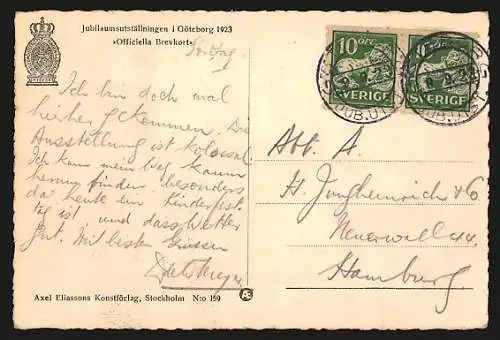 Jubilaumsutställningen i Göteborg 1923
»Officiella Brevkort»
Sonntag.
Ich bin doch mal
hierher gekommen. Die
Ausstellung ist kolossal
Ich kann mein Weg kaum
herum finden, besonders
da heute ein Kinderfest
tag ist, und dass Wetter
gut. Mit besten Grüssen
Meyer
Axel Eliassons Konstförlag, Stockholm N:o 159
Æ
10 öre
SVERIGE
10 öre
SVERIGE
JUB.UTST.
JUB.UTST.
Abt. A.
H. Jungheinrich & Co
Neuerwall 44.
Hamburg